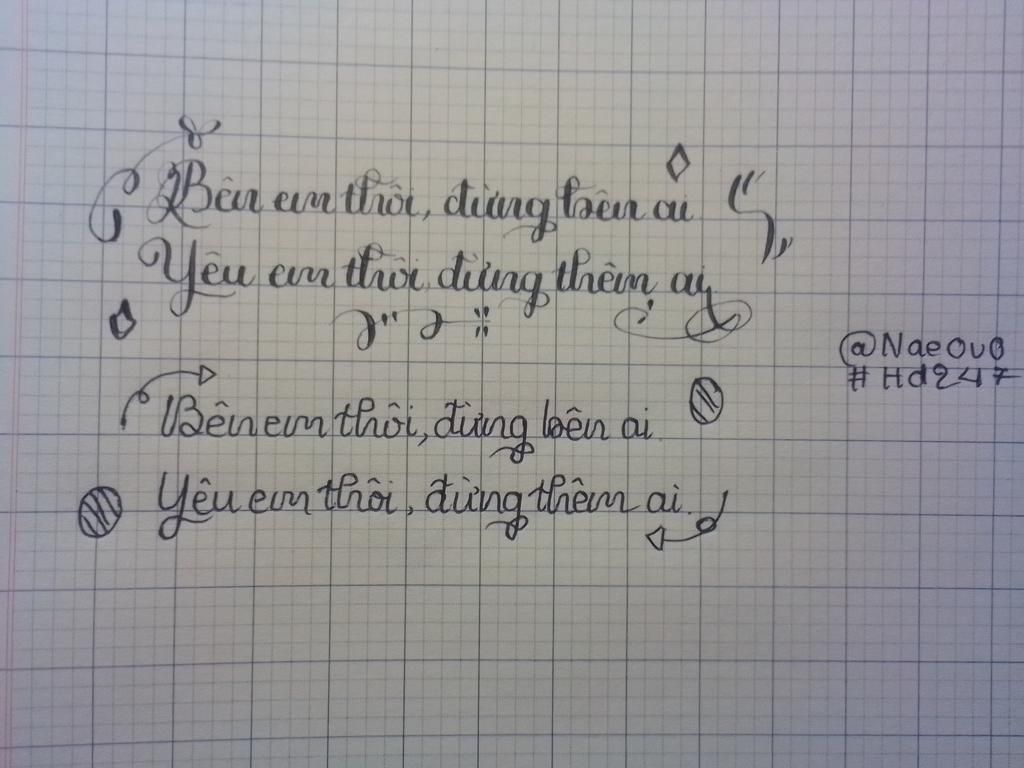 Bên em thôi, đừng bên ai
Yêu em thôi, đừng thêm ai
@NaeOuO
#Hd247
Bên em thôi, đừng bên ai
Yêu em thôi, đừng thêm ai.